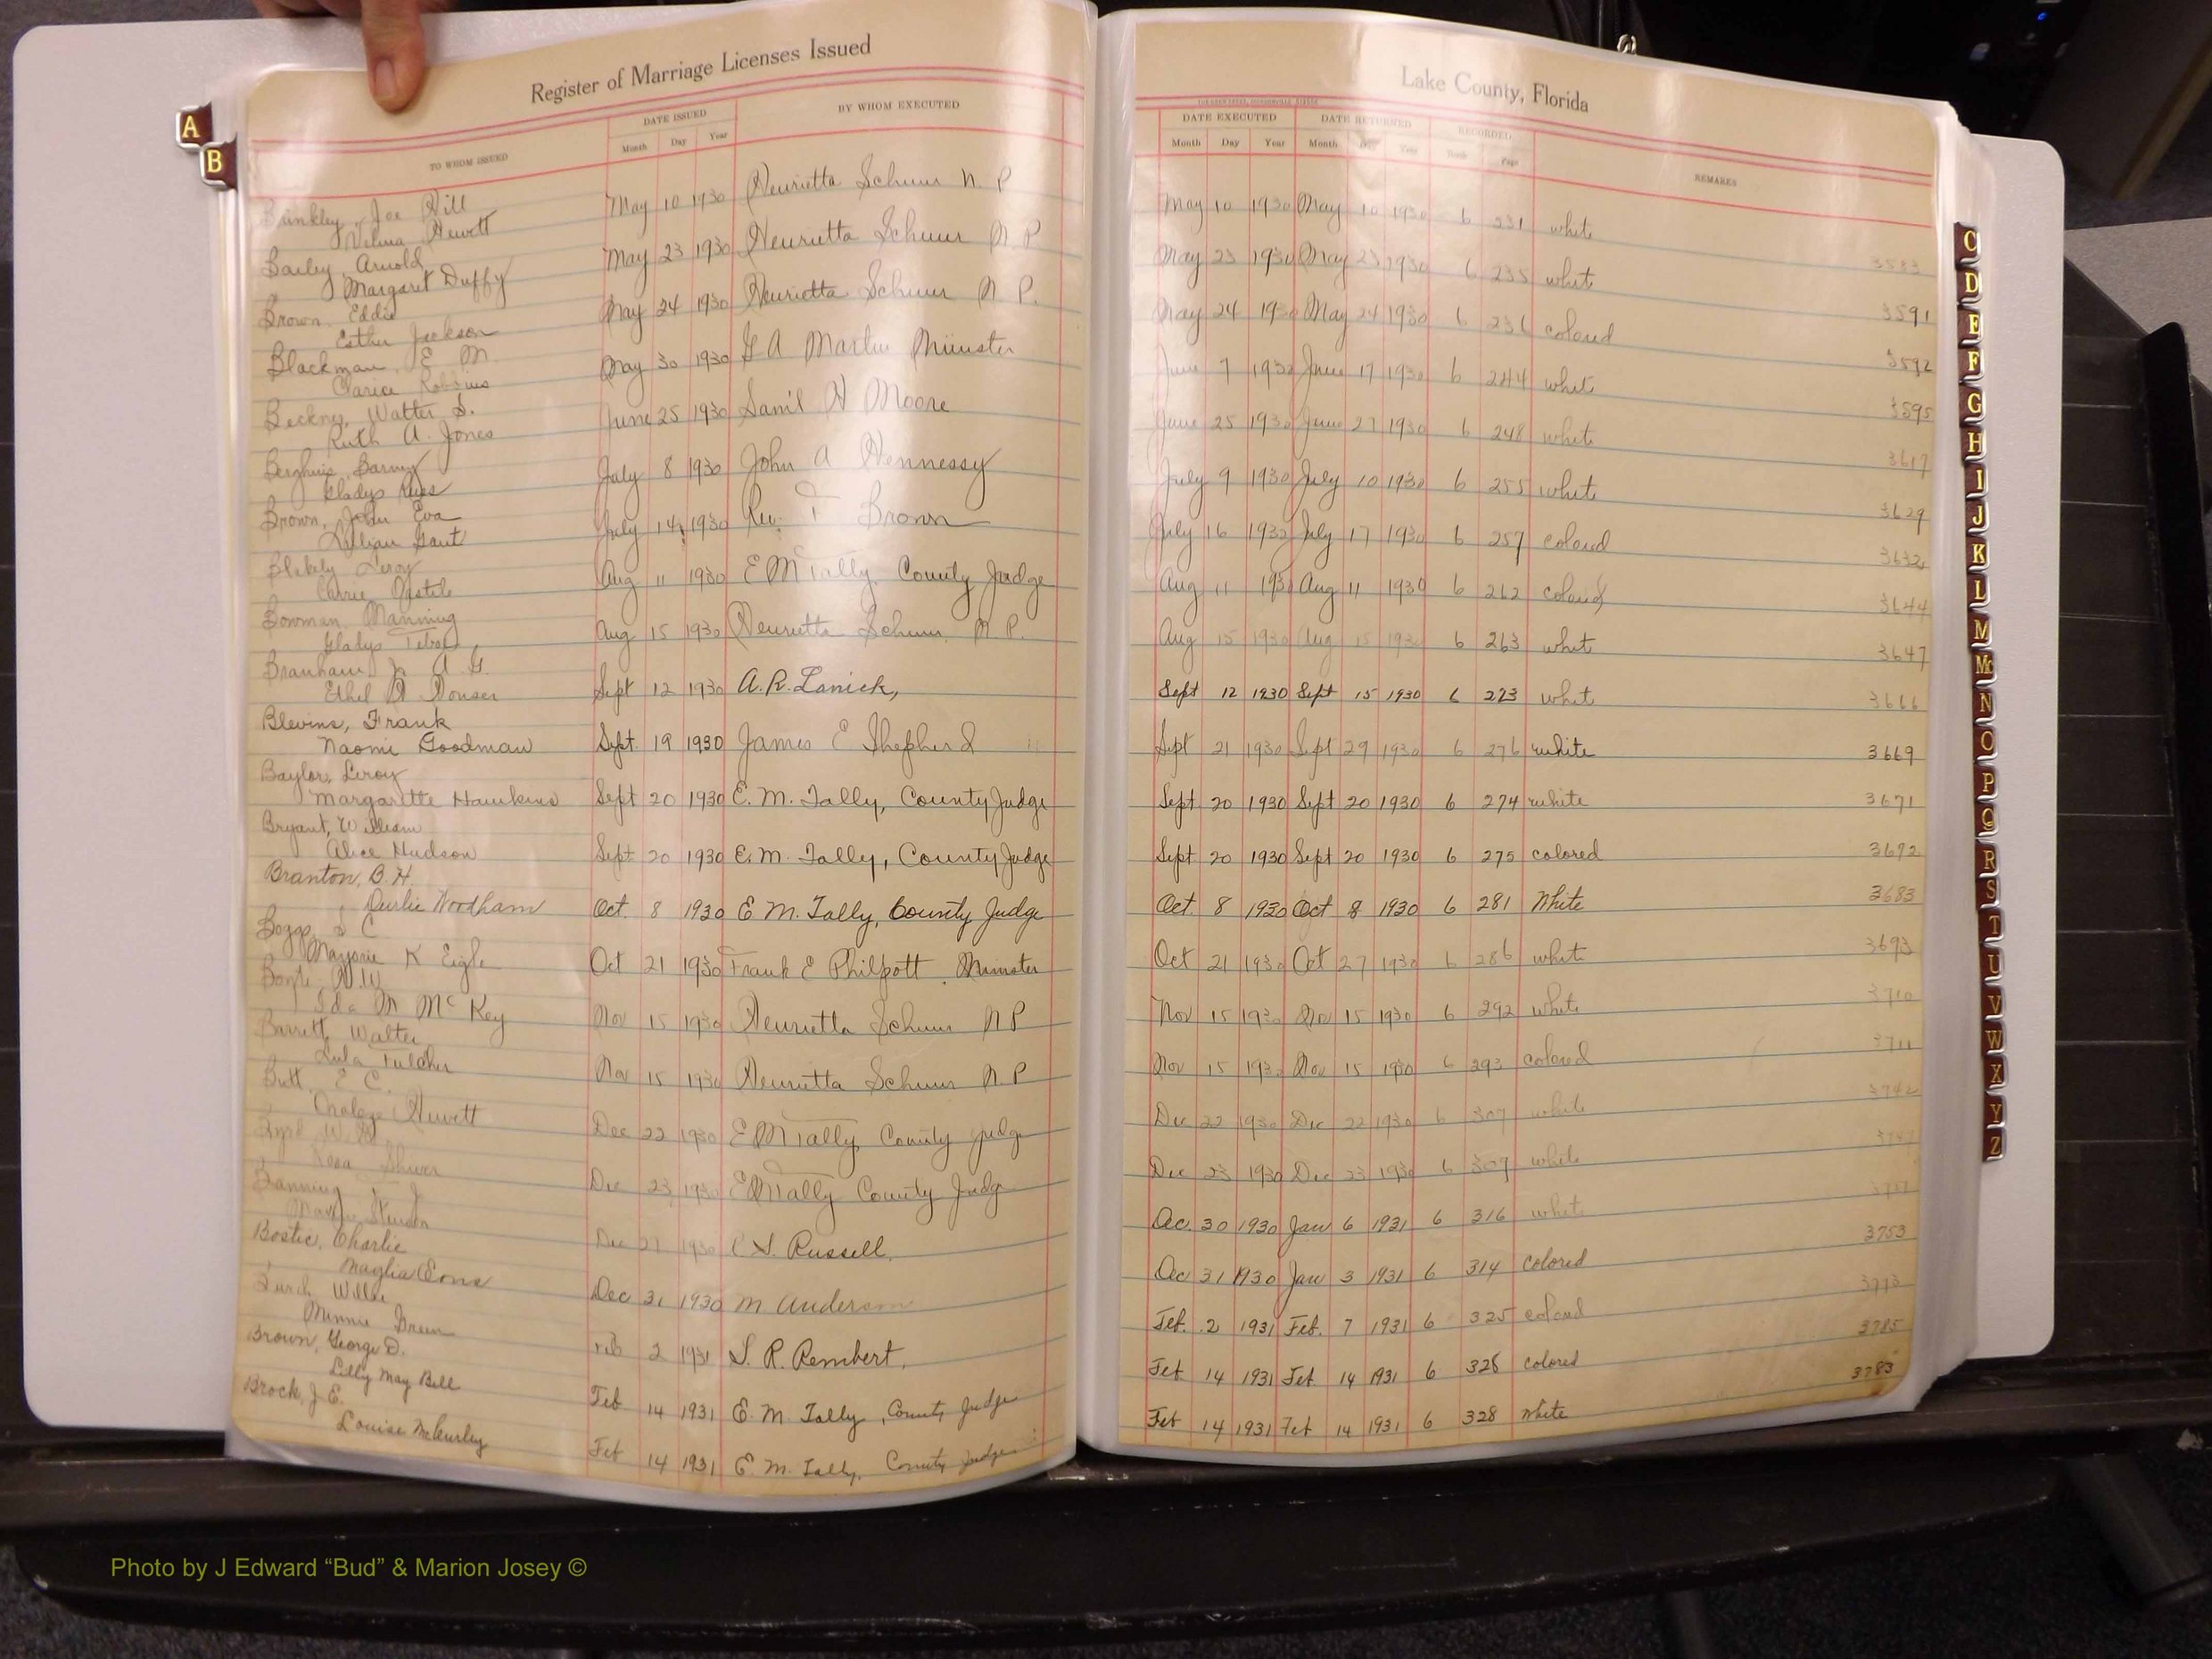 Register of Marriage Licenses Issued
Lake County, Florida
A
B
TO WHOM ISSUED
DATE ISSUED
Month Day Year
BY WHOM EXECUTED
DATE EXECUTED
Month Day Year
DATE RETURNED
Month Day Year
RECORDED
Book Page
REMARKS
Brinkley, Joe Hill
Velma Hewett
May 10 1930 Henrietta Schuur N. P
May 10 1930 May 10 1930 6 231 white
Bailey, Arnold
Margaret Duffy
May 23 1930 Henrietta Schuur N P
May 23 1930 May 23 1930 6 235 whit 3583
Brown, Eddie
Esther Jackson
May 24 1930 Henrietta Schuur N. P.
May 24 1930 May 24 1930 6 236 colored 3591
Blackman, E M.
Clarice Robbins
May 30 1930 A Martin Minister
June 7 1930 June 17 1930 6 244 whit 3592
Walter S.
Ruth A. Jones
June 25 1930 H Moore
June 25 1930 June 27 1930 6 248 white 3595
Barney
Gladys
July 8 1930 John A Hennessy
July 9 1930 July 10 1930 6 255 white 3617
Brown, John Eva
Lillian Gaut
July 14, 1930 Rev. F Brown
July 16 1930 July 17 1930 6 257 colored 3629
Blakely Leroy
Carrie
Aug 11 1930 E M Tally County Judge
Aug 11 1930 Aug 11 1930 6 262 colored 3632
Bowman, Manning
Gladys
Aug 15 1930 Henrietta Schuur N. P.
Aug 15 1930 Aug 15 1930 6 263 whit 3644
Branham, Jr A G.
Ethel
Sept 12 1930 A. R. Lanick,
Sept 12 1930 Sept 15 1930 6 273 whit 3647
Blevins, Frank
Naomi Goodman
Sept. 19 1930 James E Shepherd
Sept 21 1930 Sept 29 1930 6 276 white 3666
Baylor, Leroy
Margarette Hawkins
Sept 20 1930 E. M. Tally, County Judge
Sept 20 1930 Sept 20 1930 6 274 white 3669
Bryant, William
Alice Hudson
Sept 20 1930 E. M. Tally, County Judge
Sept 20 1930 Sept 20 1930 6 275 colored 3671
Branton, B. H.
Woodham
Oct. 8 1930 E M. Tally, County Judge
Oct. 8 1930 Oct 8 1930 6 281 White 3672
Boggs, S C
Marjorie K Eigle
Oct 21 1930 Frank E Philpott, Minister
Oct 21 1930 Oct 27 1930 6 286 whit 3683
W
Ida M McKey
Nov 15 1930 Henrietta Schuur N P
Nov 15 1930 Nov 15 1930 6 292 white 3693
Barrett, Walter
Lula Fulcher
Nov 15 1930 Henrietta Schuur N. P
Nov 15 1930 Nov 15 1930 6 293 colored 3710
Butt, E C.
Hewett
Dec 22 1930 E M Tally County Judge
Dec 22 1930 Dec 22 1930 6 307 white 3711
Byrd
Rosa
Dec 23 1930 E M Tally County Judge
Dec 23 1930 Dec 23 1930 6 309 white 3742
Dec 27 1930 Russell.
Dec. 30 1930 Jan 6 1931 6 316 white 3747
Bostic, Charlie
Maglia
Dec 31 1930 M Anderson
Dec 31 1930 Jan 3 1931 6 314 colored
Burch Willie
Minnie Green
Feb 2 1931 S. R. Rembert,
Feb. 2 1931 Feb. 7 1931 6 325 colored 3753
Brown, George D.
Lilly May Bell
Feb 14 1931 E. M. Tally, County Judge
Feb 14 1931 Feb 14 1931 6 328 colored 3773
Brock, J. E.
Louise McCurley
Feb 14 1931 E. M. Tally, County Judge
Feb 14 1931 Feb 14 1931 6 328 White 3785
3783
C
D
E
F
G
H
I
J
K
L
M
Mc
N
O
P
Q
R
S
T
U
V
W
X
Y
Z
Photo by J Edward “Bud” & Marion Josey ©